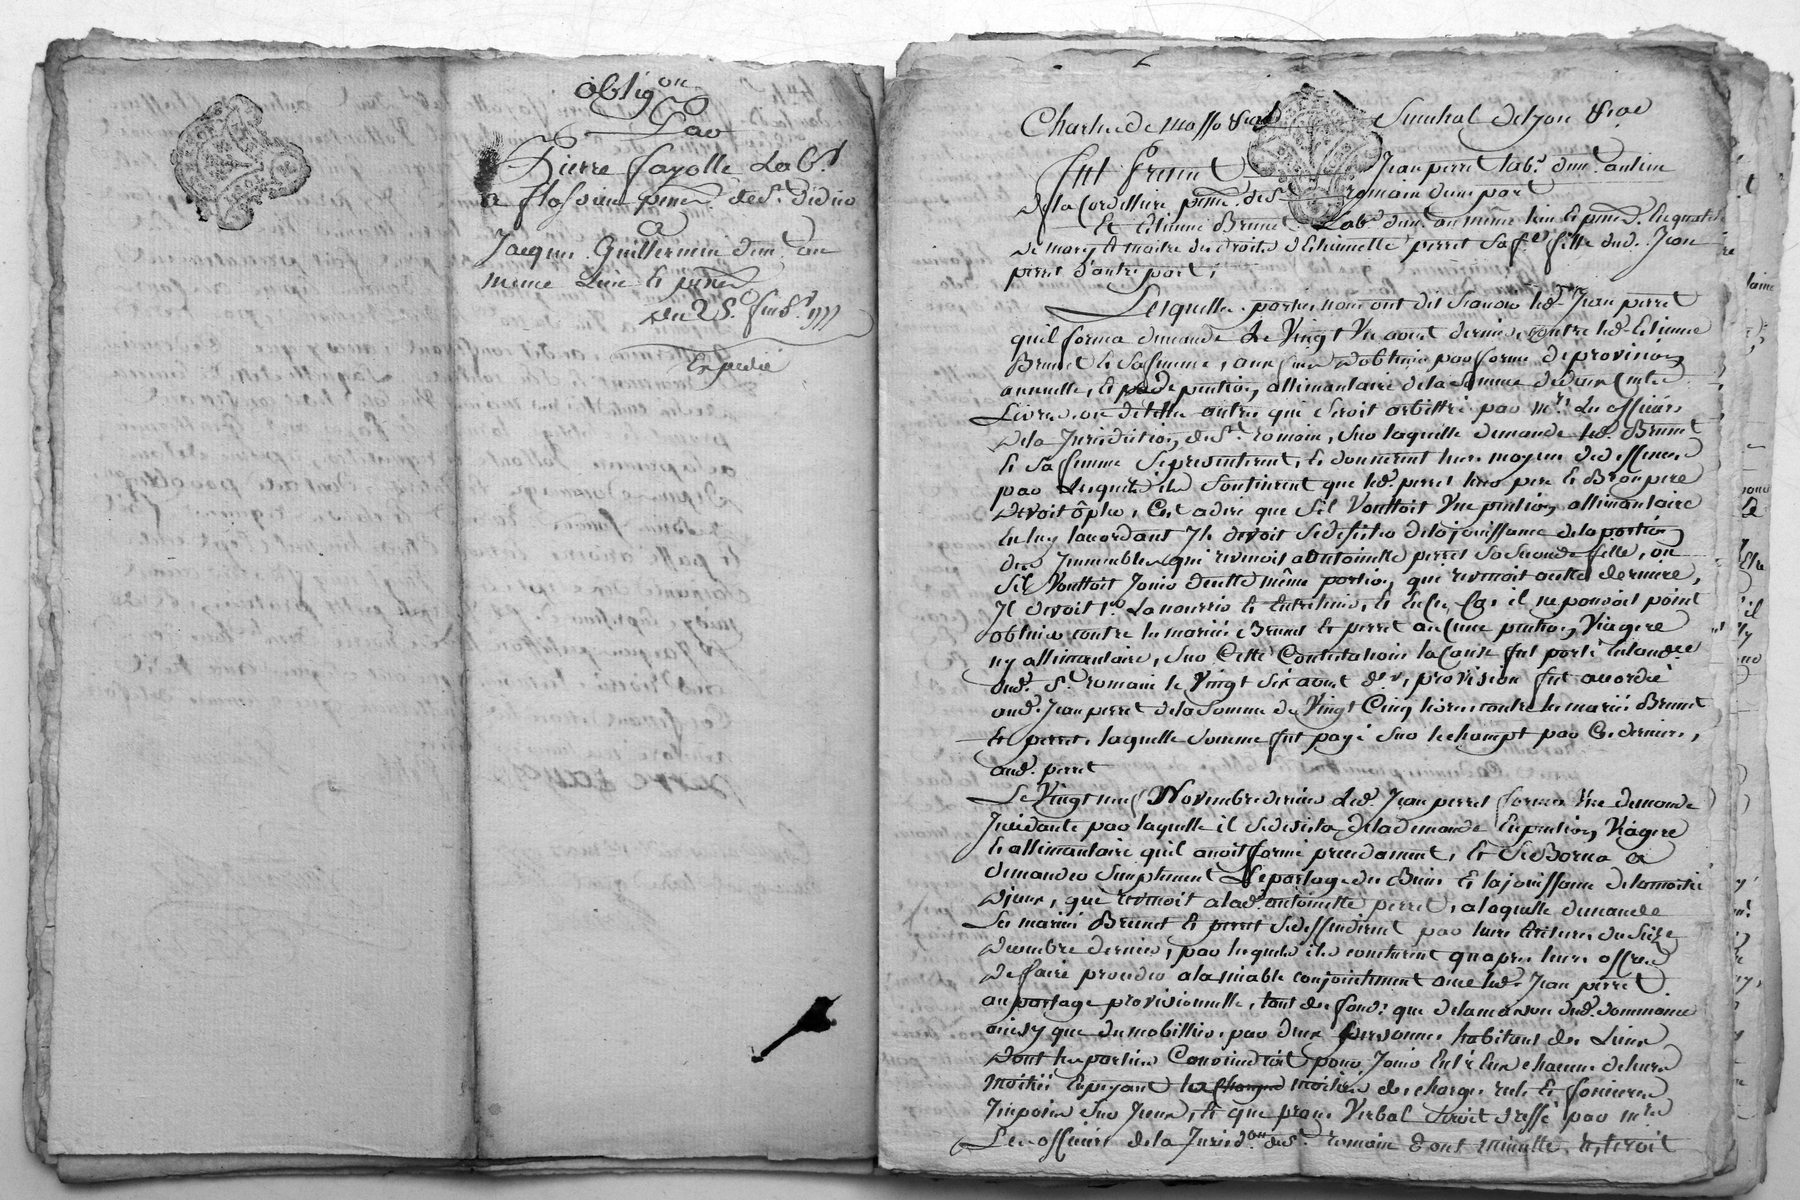 obligon
Par
Pierre fayolle Labr
a flossieu parr de St didier
a
Jacques Guillermin dem. au
meme Lieu et parr
du 25e. 1777
Expedié
Charlu de masso Senechal de Lyon
fut present Jean perret Labr. dem. au lieu
de la Cordeliere parr. de St. romain d'une part
Et Etienne Brunet Labr. dem. au même lieu et parr. En qualité
de mary et maitre des droits d'Etiennette perret Sa fe. fille dud. Jean
perret d'autre part,
Lesquelles parties nous ont dit Scavoir led. Jean perret
quil forma demande Le Vingt Un aout dernier contre led. Etienne
Brunet et Sa femme, aux fins d'obtenir par forme de provision
annuelle, et de pention allimantaire de la Somme de deux Cents
Livres ou de telle autre qui Seroit arbittré par mrs. Les officiers
de la Jurisdiction de St. romain, Sur laquelle demande led. Brunet
et Sa femme Se presenterent, et donnerent leurs moyens de deffenses
par Lesquels ils Soutinrent que led. perret leur pere et Beaupere
devoit ôpter, C'est a dire que S'il Vouttoit Une pention allimantaire
En luy lacordant Il devoit Se desister de la jouissance de la portion
des Immeubles qui revenoit a antoinette perret Sa Seconde fille, ou
S'il Vouttoit Jouir de cette même portion qui revenoit a cette derniere,
Il devoit La nourrir et Entretenir, et En Ce Cas il ne pouvoit point
obtenir contre les mariés Brunet et perret aucune pention Viagere
ny allimantaire, Sur Cette Contestation la Cause fut porté En laudce
dud. St. romain le Vingt Six aout der., provision fut accordée
aud. Jean perret de la Somme de Vingt Cinq livres contre les mariés Brunet
et perret, laquelle Somme fut payé Sur le champt par Ces derniers,
aud. perret
Le Vingt neuf Novembre dernier led. Jean perret forma Une demande
Incidante par laquelle il Se desista de la demande En pention Viagere
et allimantaire quil avoit formé precedament, et Se Borna a
demander Simplement Le partage des Biens Et la jouissance de la moitié
d'iceux, que revenoit a lad. antoinette perret, a laquelle demande
Les mariés Brunet et perret Se deffendirent par leurs Ecritures du Seize
decembre dernier, par lesquels ils conclurent qu'apres leurs offres
de faire proceder a lamiable conjointement avec led. Jean perret
au partage provisionnelle, tant des fonds que de la maison dud. dommaine
ainsy que du mobillier par deux personnes habitants des Lieux
dont les parties Conviendroit pour Jouir Entr'Eux chacun de leurs
moitiés En payant la moitié des charges reels et foncieres
Imposés Sur Iceux, et que procés Verbal Seroit dressé par mrs
Les officiers de la Juridon de St. romain dont minutte resteroit